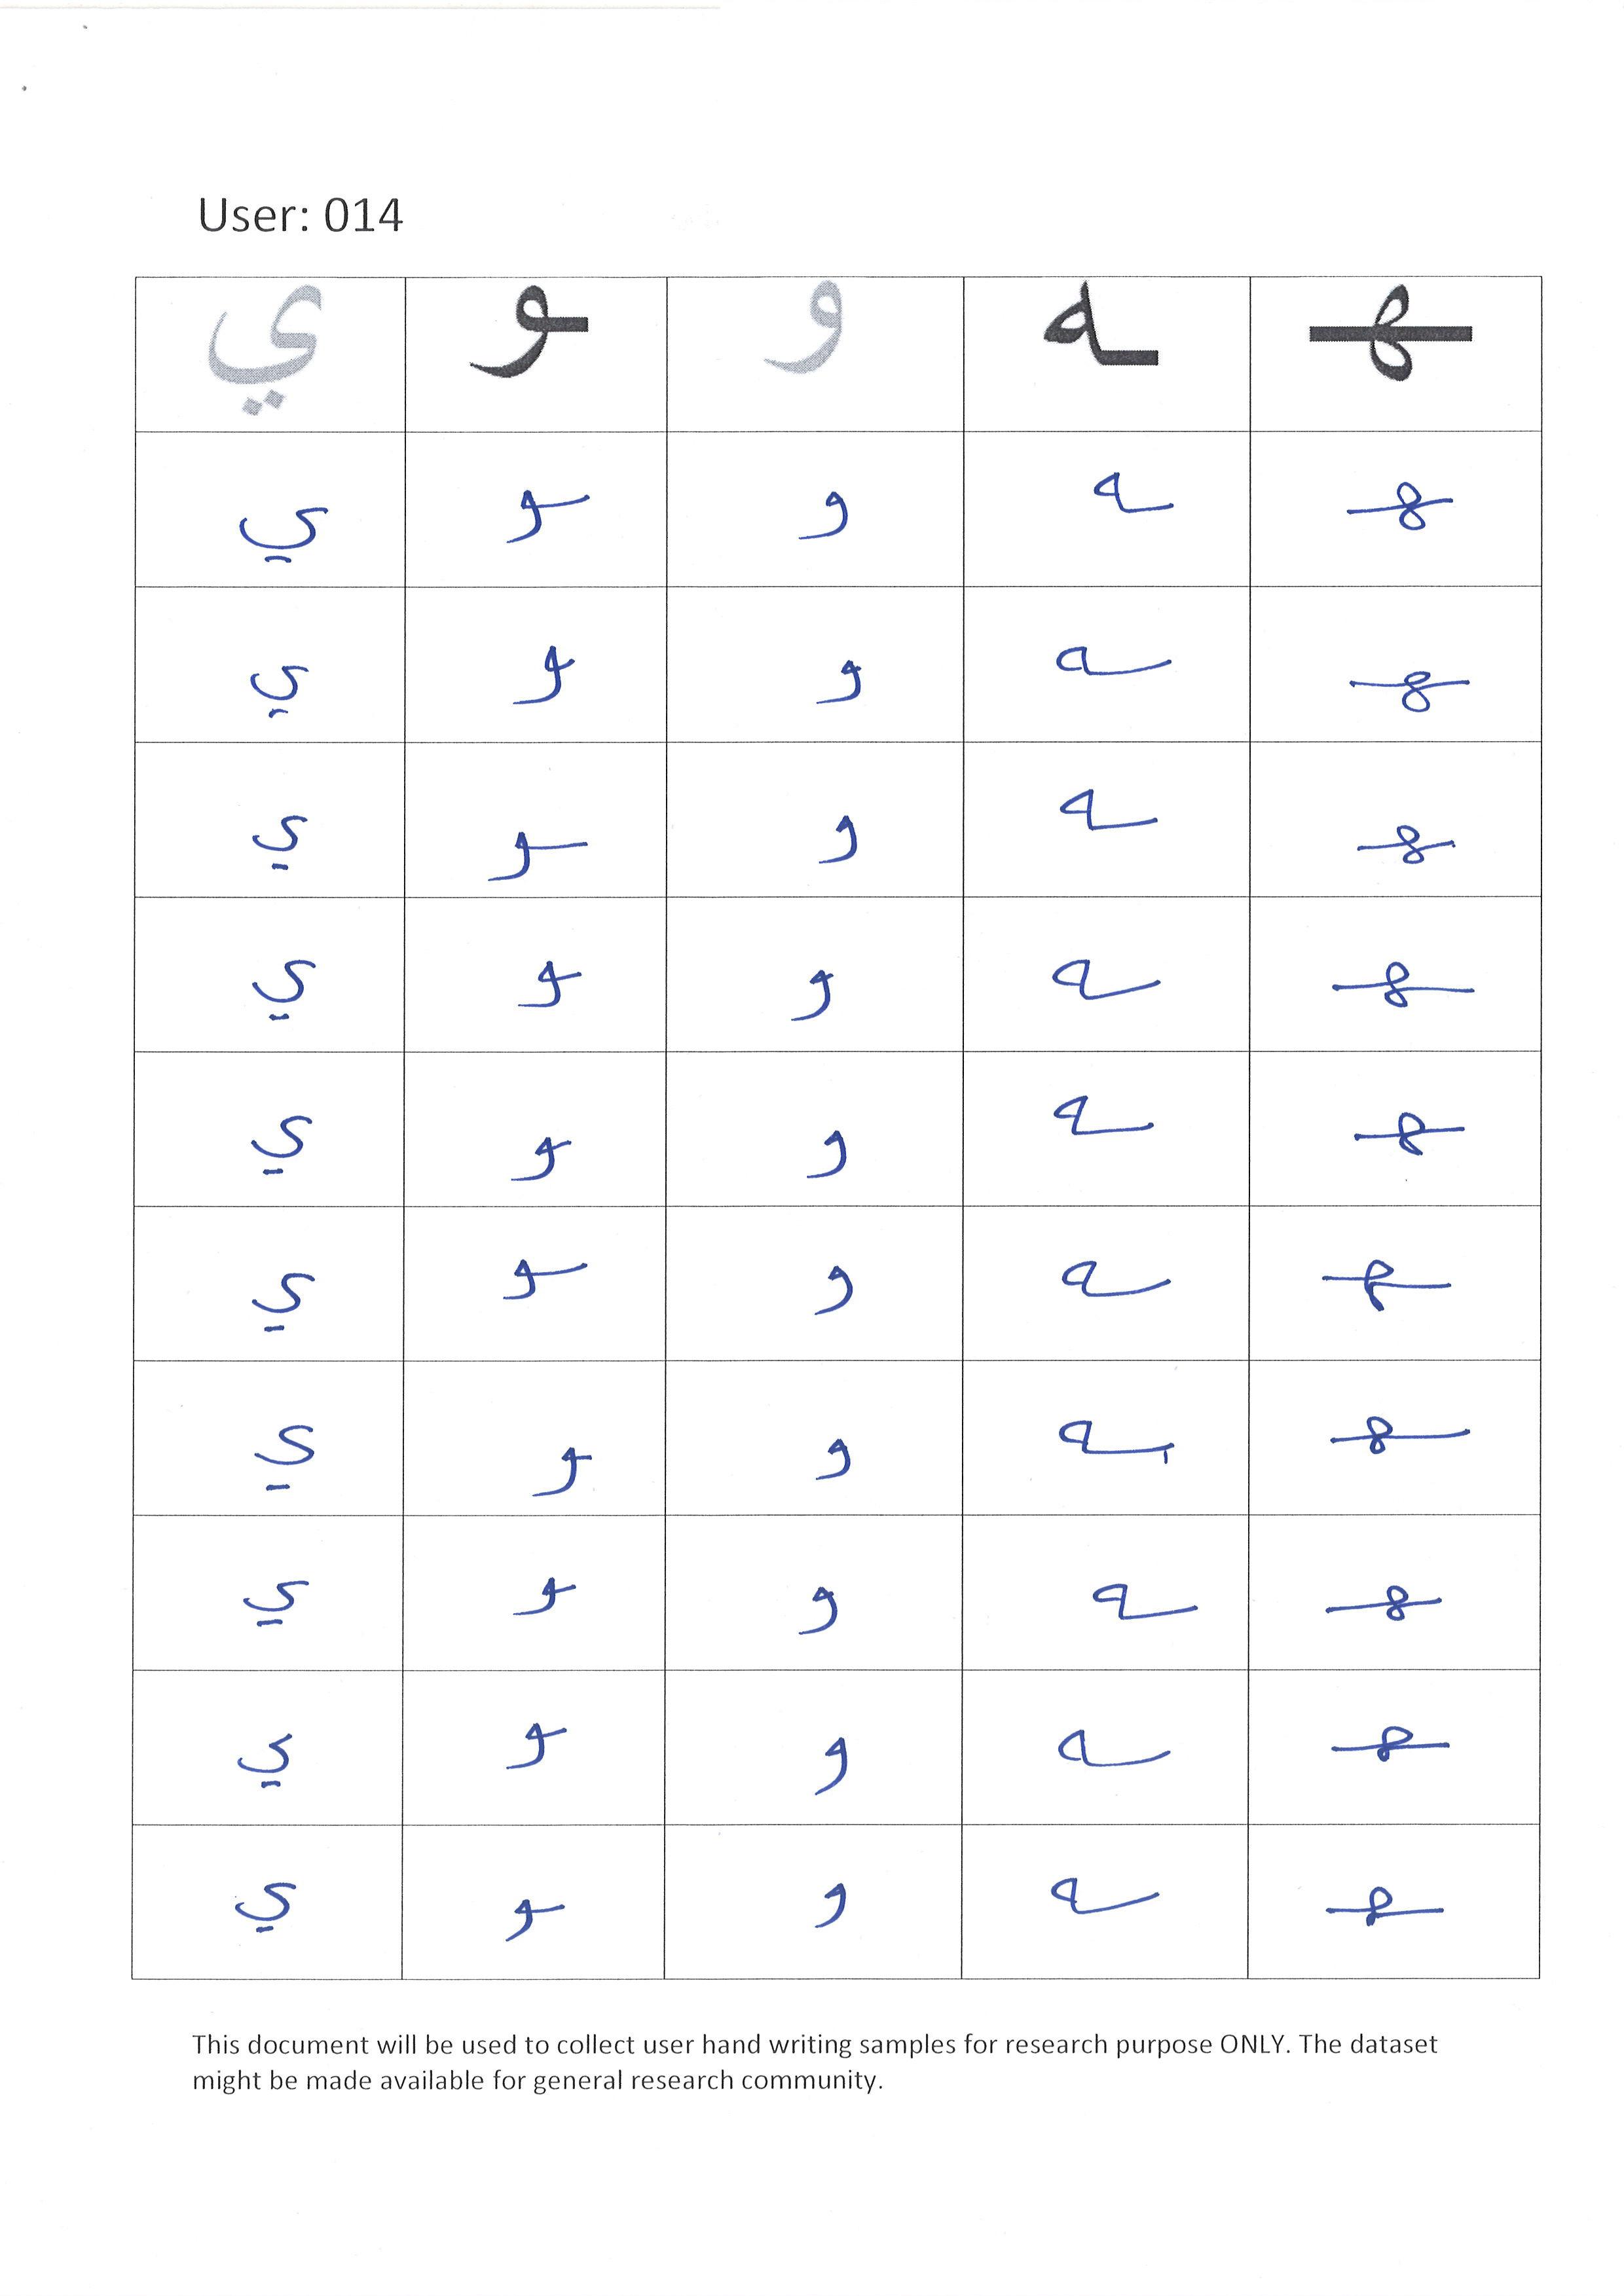 User: 014
ي ـو و ـه ـهـ
ي ـو و ـه ـهـ
ي ـو و ـه ـهـ
ي ـو و ـه ـهـ
ي ـو و ـه ـهـ
ي ـو و ـه ـهـ
ي ـو و ـه ـهـ
ي ـو و ـه ـهـ
ي ـو و ـه ـهـ
ي ـو و ـه ـهـ
ي ـو و ـه ـهـ
This document will be used to collect user hand writing samples for research purpose ONLY. The dataset
might be made available for general research community.